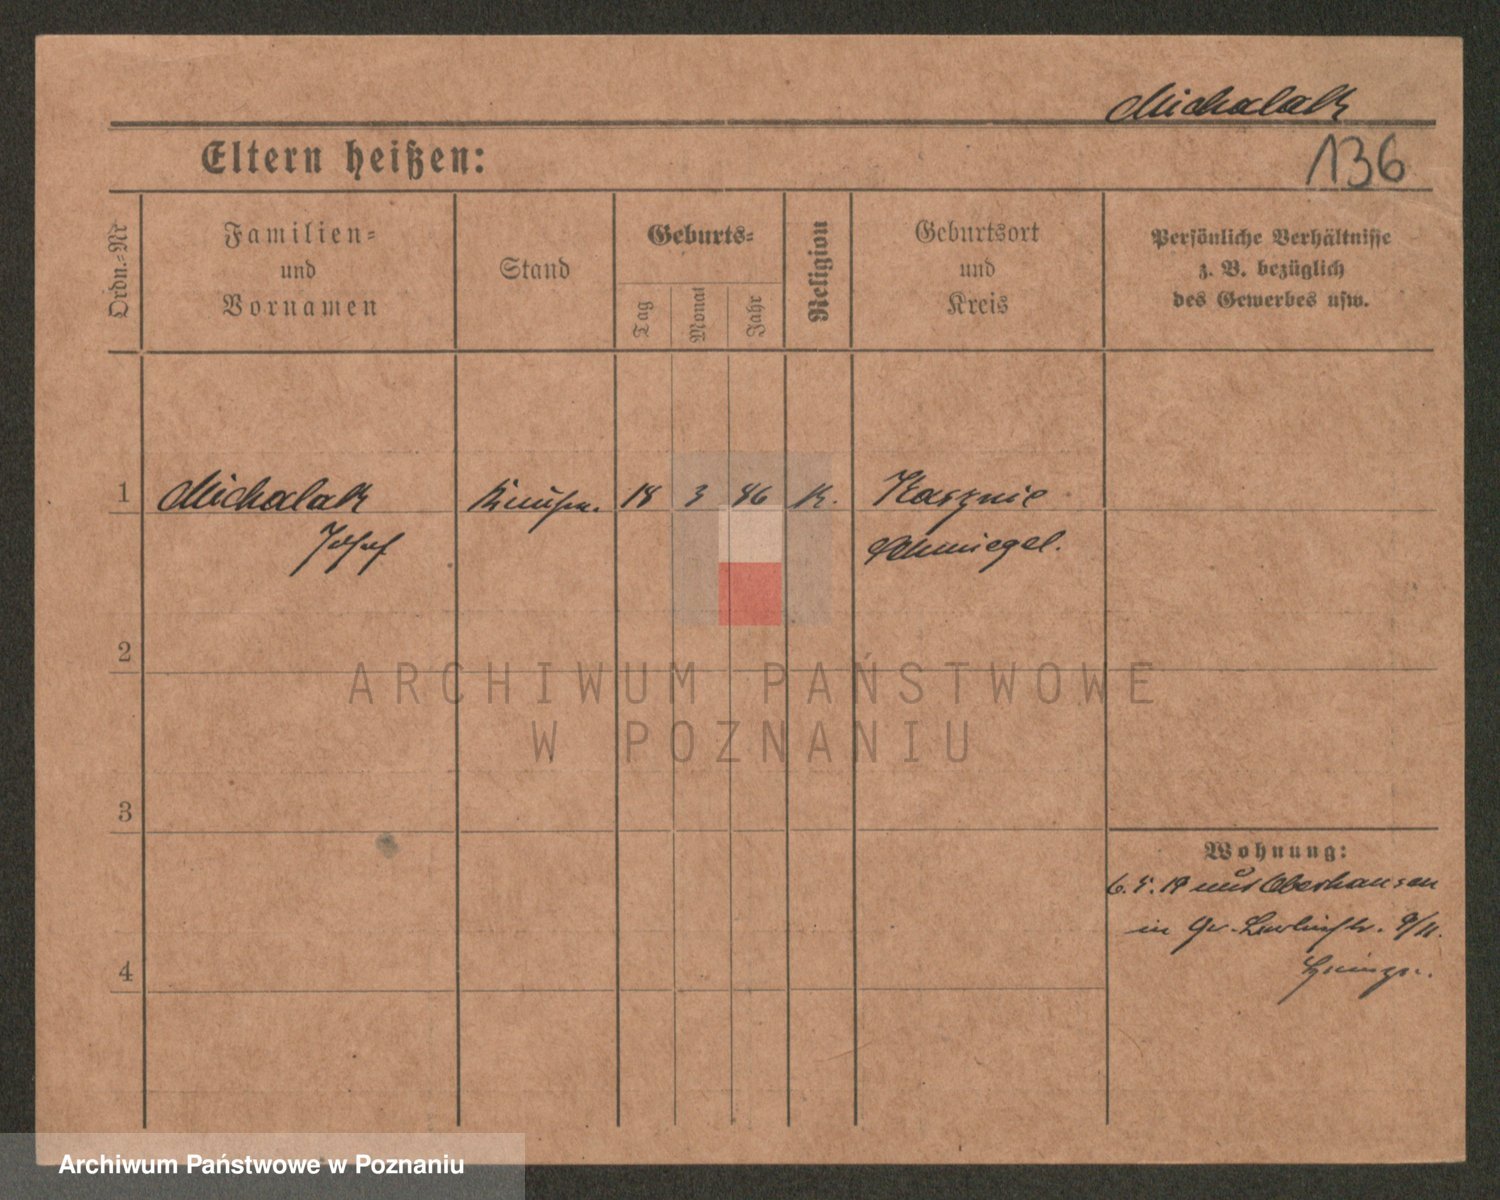 Michalak
136
Eltern heißen:
Ordn.-Nr
Familien-
und
Vornamen
Stand
Geburts-
Tag
Monat
Jahr
Religion
Geburtsort
und
Kreis
Persönliche Verhältnisse
z. B. bezüglich
des Gewerbes usw.
1
Michalak
Josef
18 3 86
K.
Schmiegel.
2
ARCHIWUM PAŃSTWOWE
W POZNANIU
3
Wohnung:
6. 5. 18 aus Oberhausen
in Gr. 9/11.
4
Archiwum Państwowe w Poznaniu